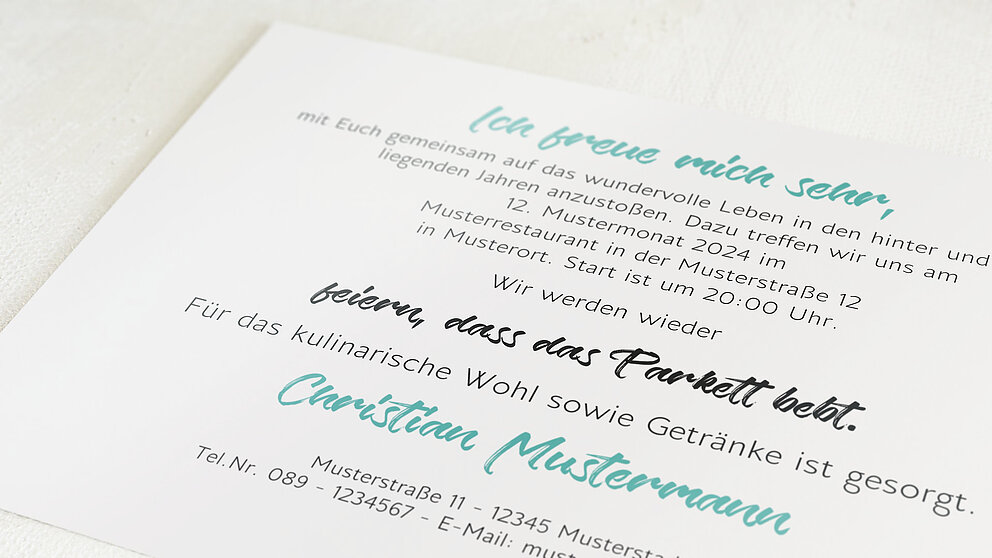 Ich freue mich sehr,
mit Euch gemeinsam auf das wundervolle Leben in den hinter und
liegenden Jahren anzustoßen. Dazu treffen wir uns am
12. Mustermonat 2024 im
Musterrestaurant in der Musterstraße 12
in Musterort. Start ist um 20:00 Uhr.
Wir werden wieder
feiern, dass das Parkett bebt.
Für das kulinarische Wohl sowie Getränke ist gesorgt.
Christian Mustermann
Musterstraße 11 - 12345
Tel.Nr. 089 - 1234567 - E-Mail: